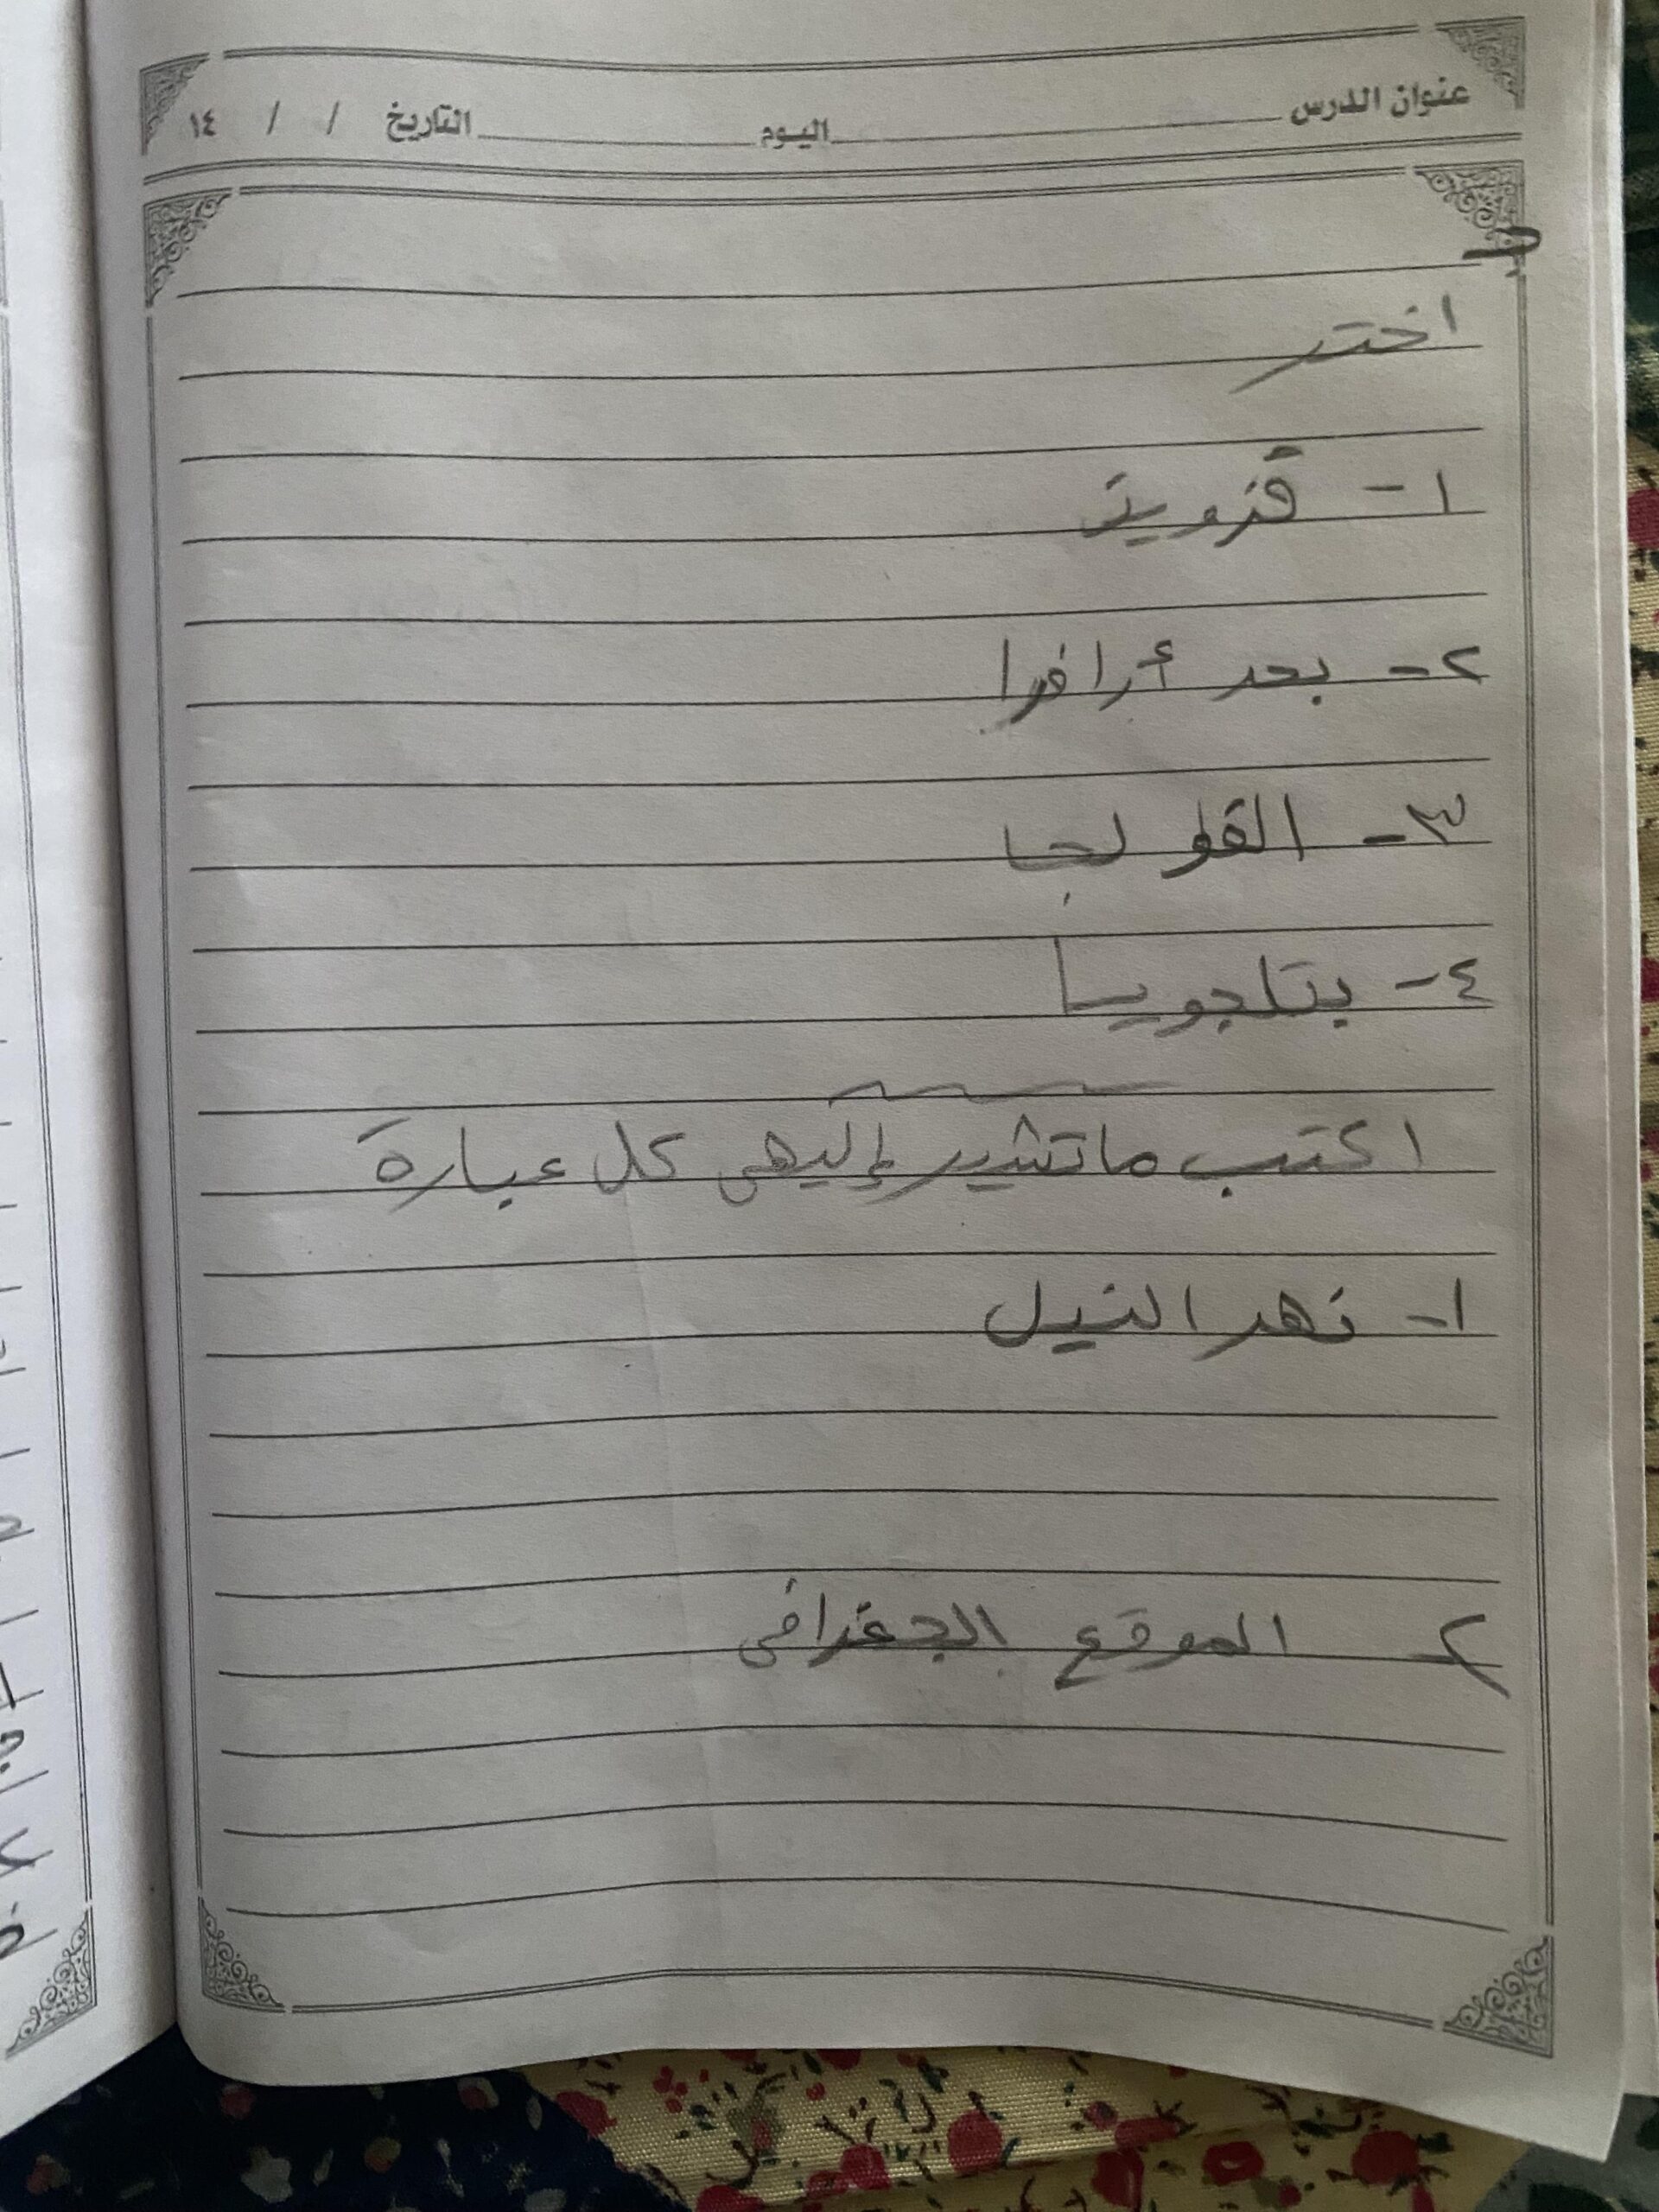 عنوان الدرس اليوم التاريخ / / ١٤
اختر
١- قزوين
٢- بحر أرافورا
٣- الفولجا
٤- بتلجويسا
اكتب ما تشير إليهى كل عبارة
١- نهر النيل
٢ الموقع الجغرافى